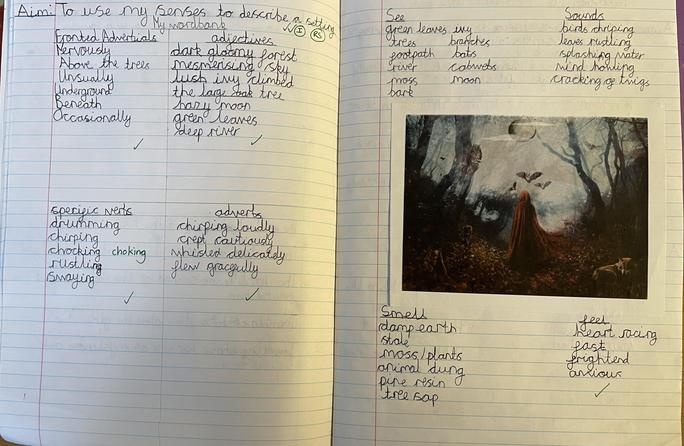 Aim: To use my senses to describe a setting
My wordbank
Fronted Adverbials
Nervously
Above the trees
Unsually
Underground
Beneath
Occasionally
adjectives
dark gloomy forest
mesmerising sky
lush ivy climbed
the large oak tree
hazy moon
green leaves
deep river
specific verbs
drumming
chirping
chocking choking
rustling
swaying
adverbs
chirping loudly
crept cautiously
whisled delicately
flew gracefully
See
green leaves ivy
trees branches
footpath bats
river cobwebs
moss moon
bark
Sounds
birds chriping
leaves rustling
splashing water
wind howling
cracking of twigs
Smell
damp earth
stale
moss/plants
animal dung
pine resin
tree sap
feel
heart racing
fast
frightend
anxious